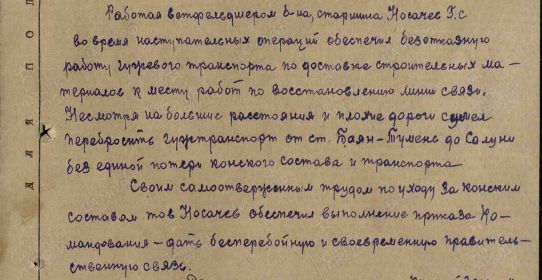 Работая ветфельдшером б-на, старшина Носачев Г.С
во время наступательных операций обеспечил безотказную
работу гужевого транспорта по доставке строительных ма-
териалов к месту работ по восстановлению линии связи.
Несмотря на большие расстояния и плохие дороги сумел
перебросить гужтранспорт от ст. Баян-Тумень до Салуни
без единой потери конского состава и транспорта
Своим самоотверженным трудом по уходу за конским
составом тов Носачев обеспечил выполнение приказа Ко-
мандования - дать бесперебойную и своевременную правитель-
ственную связь.
для под